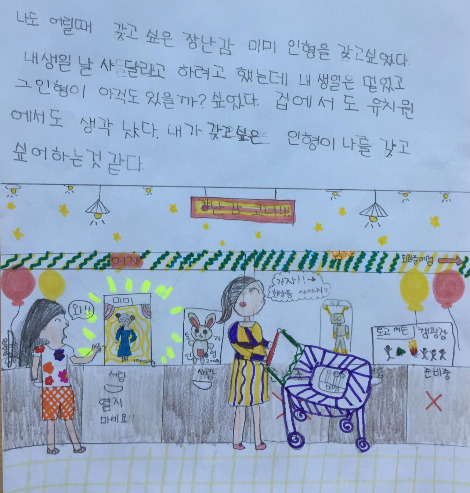 나도 어릴때 갖고 싶은 장난감 미미 인형을 갖고싶었다.
내생일 날 사달라고 하려고 했는데 내 생일은 멀었고
그 인형이 아직도 있을까? 싶었다. 집에서 도 유치원
에서도 생각 났다. 내가 갖고싶은 인형이 나를 갖고
싶어하는것 같다.
와!!
미미
가자!!→
서랍
열지
마세요!
서랍
캠핑장
준비중